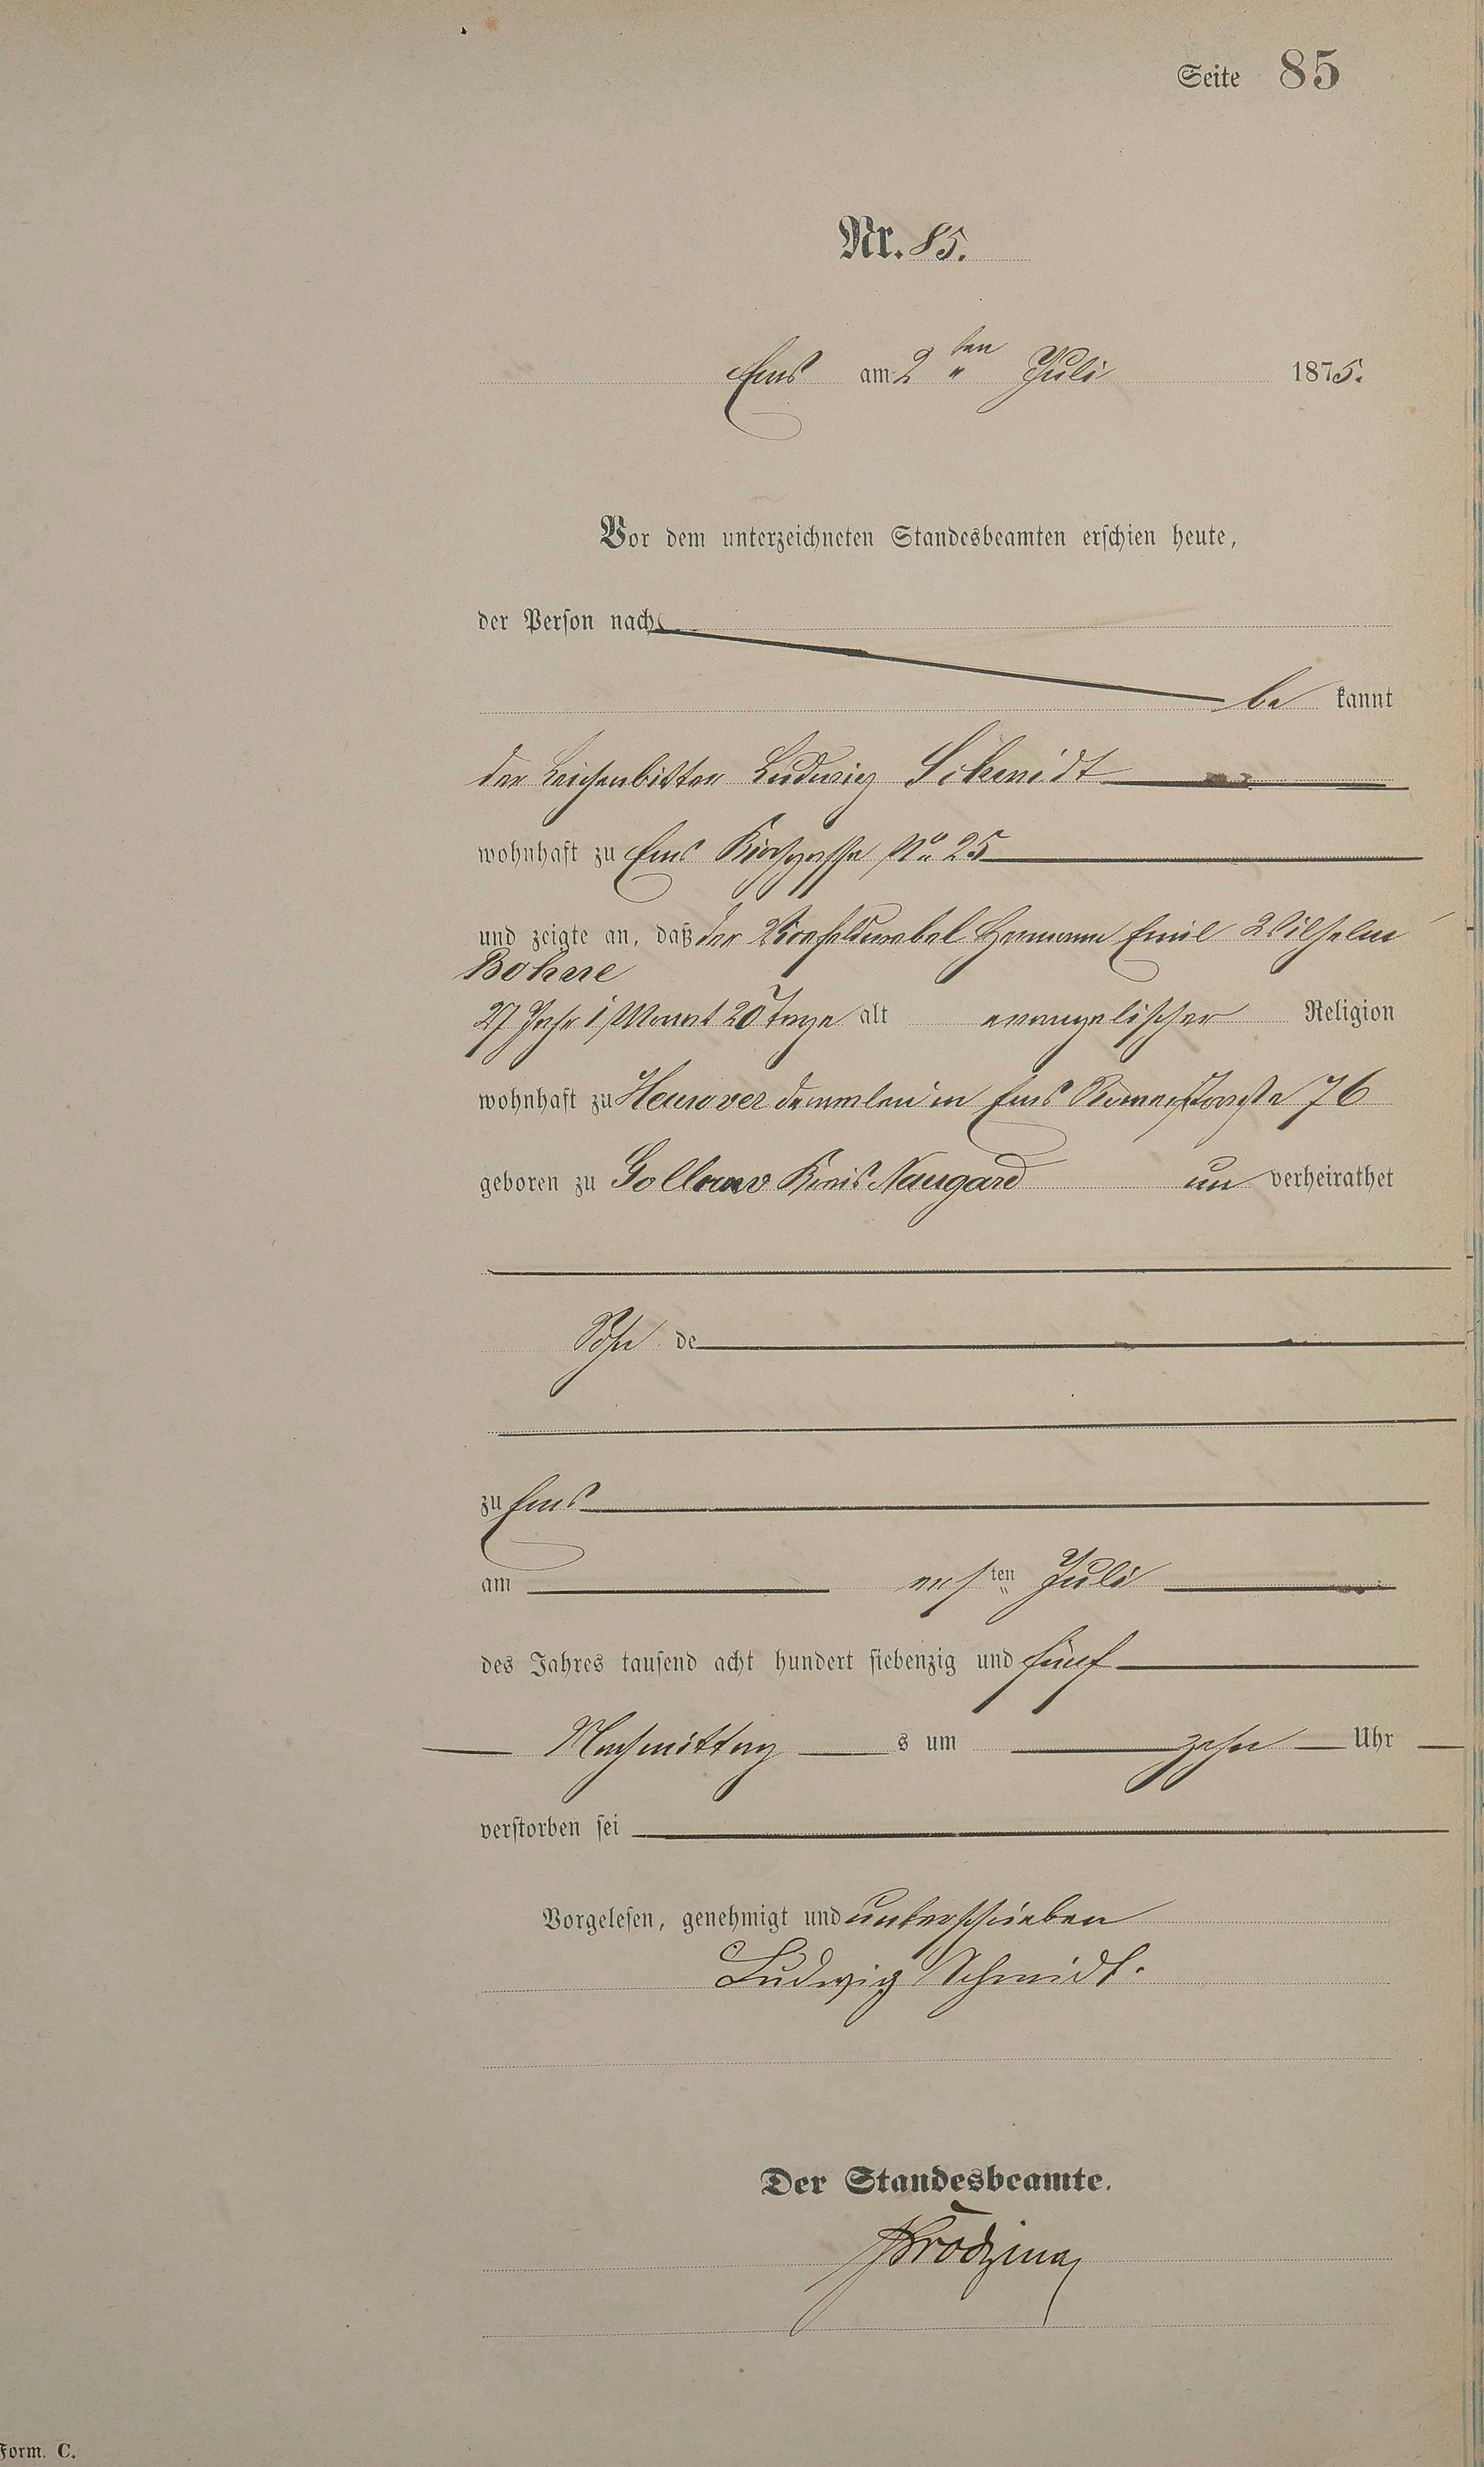 Seite 85
Nr. 85.
Ems am 2ten Juli 1875.
Vor dem unterzeichneten Standesbeamten erschien heute,
der Person nach
be kannt
der Leichenbitter Ludwig Schmidt
wohnhaft zu Ems Kirchgasse No 25
und zeigte an, daß der Vicefeldwebel Hermann Emil Wilhelm
Bohne
27 Jahr 1 Monat 20 Tage alt evangelischer Religion
wohnhaft zu in Ems Römerstraße 76
geboren zu Gollnow Kreis Naugard un verheirathet
Sohn de
zu Ems
am ersten Juli
des Jahres tausend acht hundert siebenzig und fünf
Nachmittag s um zehn Uhr
verstorben sei
Vorgelesen, genehmigt und unterschrieben
Ludwig Schmidt.
Der Standesbeamte.
Form. C.